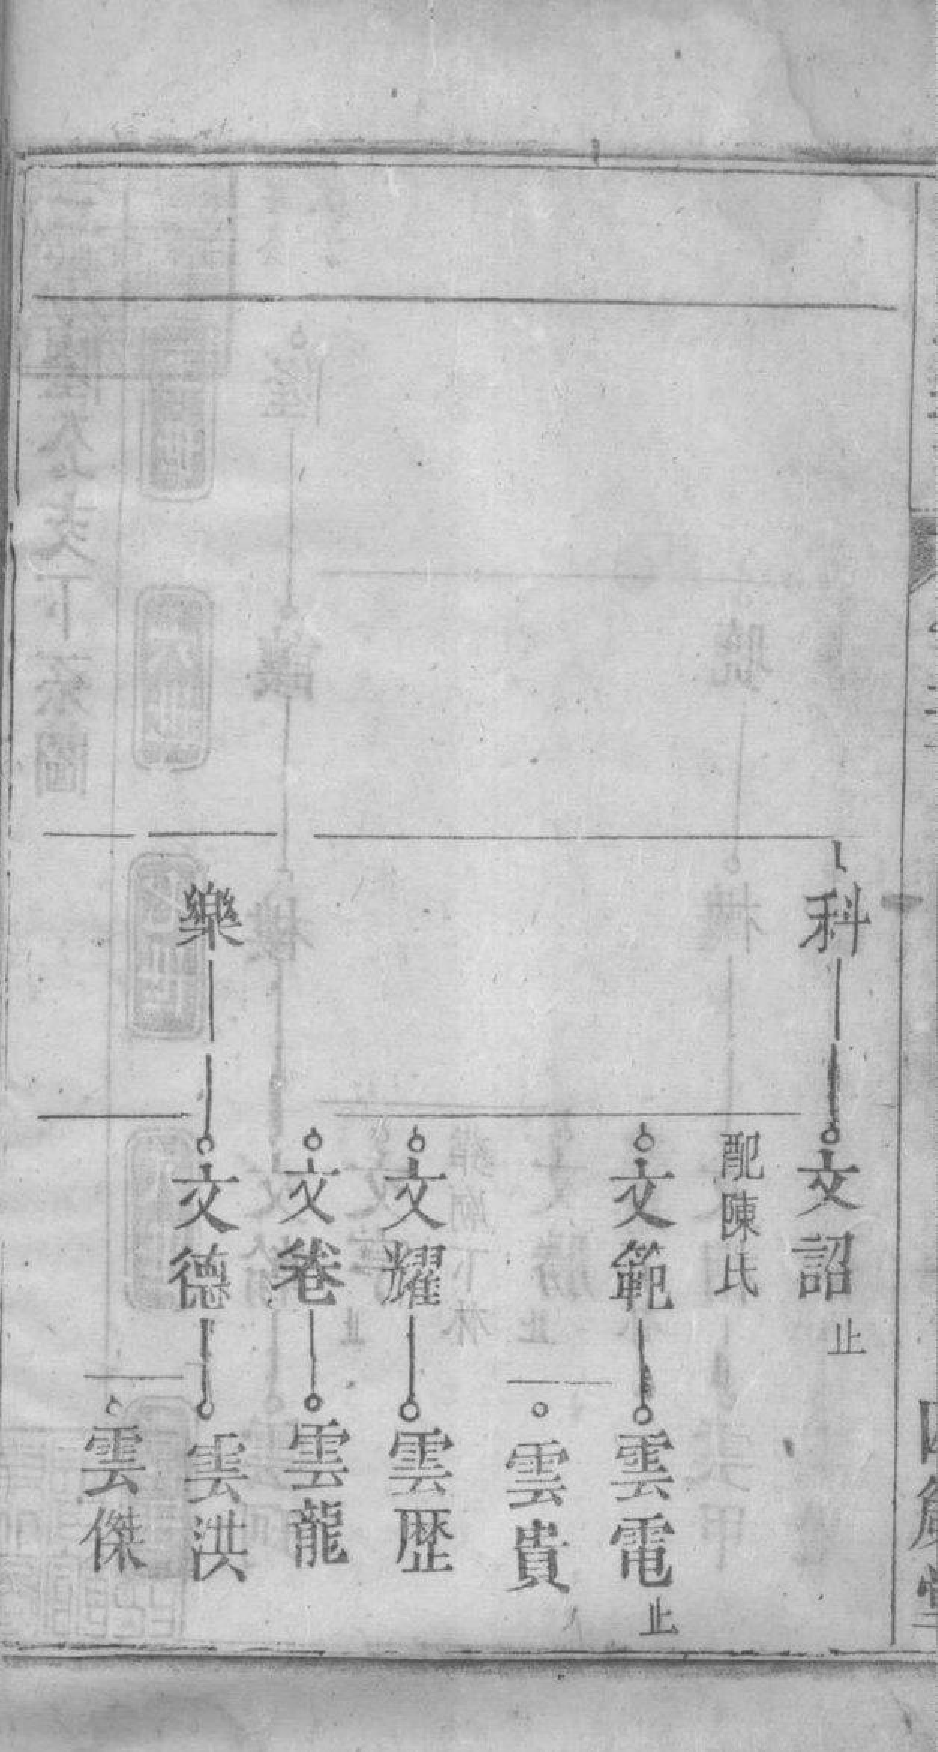 科
樂
文詔 止
配陳氏
文範
文耀
文卷
文德
雲電 止
雲貴
雲歷
雲龍
雲洪
雲傑